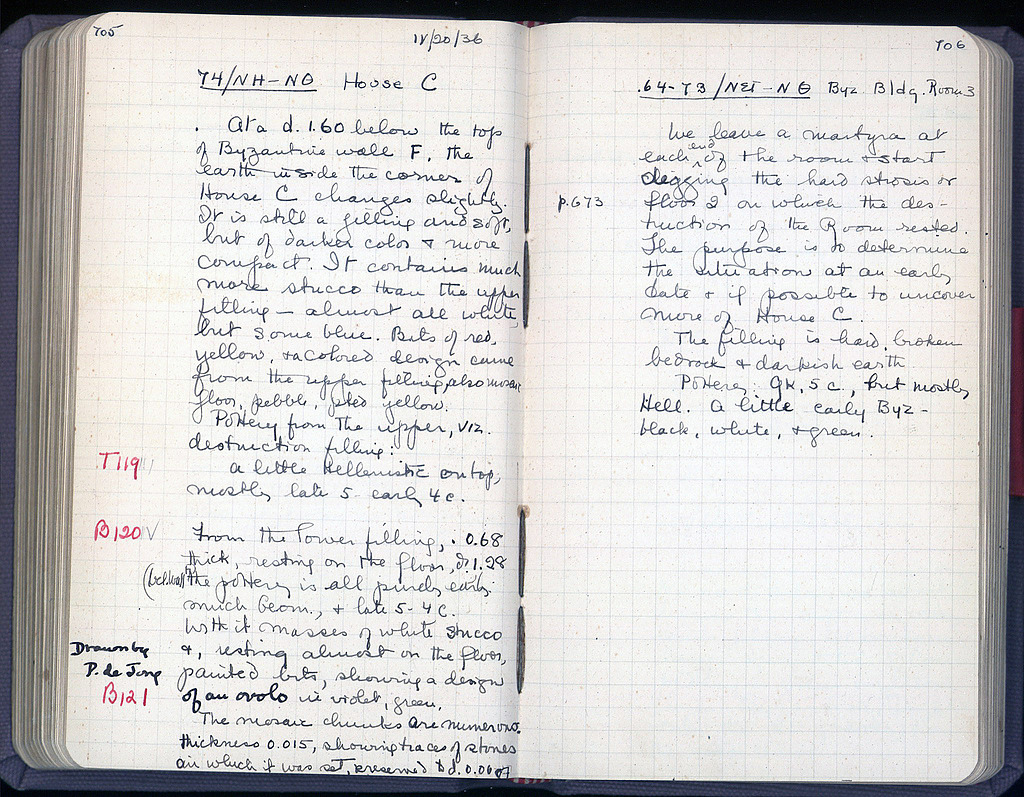 705
IV/20/36
74/NH-NΘ House C
. At a d. 1.60 below the top
of Byzantine wall F, the
earth inside the corner of
House C changes slightly.
It is still a filling and soft,
but of darker color & more
compact. It contains much
more stucco than the upper
filling — almost all white,
but some blue. Bits of red,
yellow, & a colored design came
from the upper filling, also mosaic
floor, pebble, yellow.
Pottery from the upper, viz.
destruction filling:
T119
a little Hellenistic on top,
mostly late 5 - early 4 c.
B120 V
From the lower filling, . 0.68
thick, resting on the floor, d. 1.28
the pottery is all purely early
much geom., & late 5-4 c.
With it masses of white stucco
&, resting almost on the floor,
Drawn by
P. de Jong
painted bits, showing a design
B121
of an ovolo in violet, green.
The mosaic chunks are numerous.
thickness 0.015, showing traces of stones
on which it was set, preserved to d.
706
.64-73/NΣΤ-NΘ Byz. Bldg. Room 3
We leave a martyra at
each end of the room & start
digging the hard strosis or
p.673
floor 2 on which the des-
truction of the Room rested.
The purpose is to determine
the situation at an early
date & if possible to uncover
more of House C.
The filling is hard, broken
bedrock & darkish earth.
Pottery: Gk, 5 c., but mostly
Hell. A little early Byz -
black, white, & green.